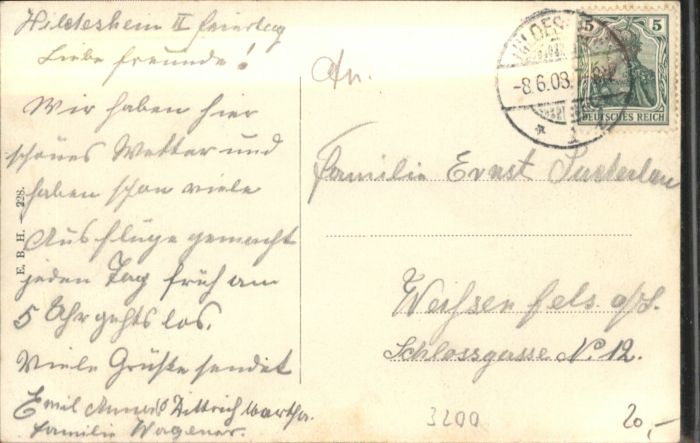 Hildesheim II feiertag
Liebe freunde!
Wir haben hier
schönes Wetter und
haben schon viele
Ausflüge gemacht
jeden Tag früh am
5 Uhr gehts los.
Viele Grüße sendet
Emil Dittrich Martha.
familie Wagener.
E. B. H. 228.
An.
Familie Ernst
Weißenfels a/S.
Schlossgasse No 12.
3200
20,-
HILDES
-8.6.08.
1
5 5
DEUTSCHES REICH